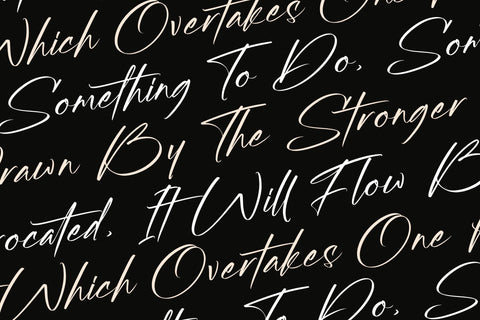 Which Overtakes One
Something To Do, Som
Drawn By The Stronger
rocated, It Will Flow B
Which Overtakes One
To Do, S